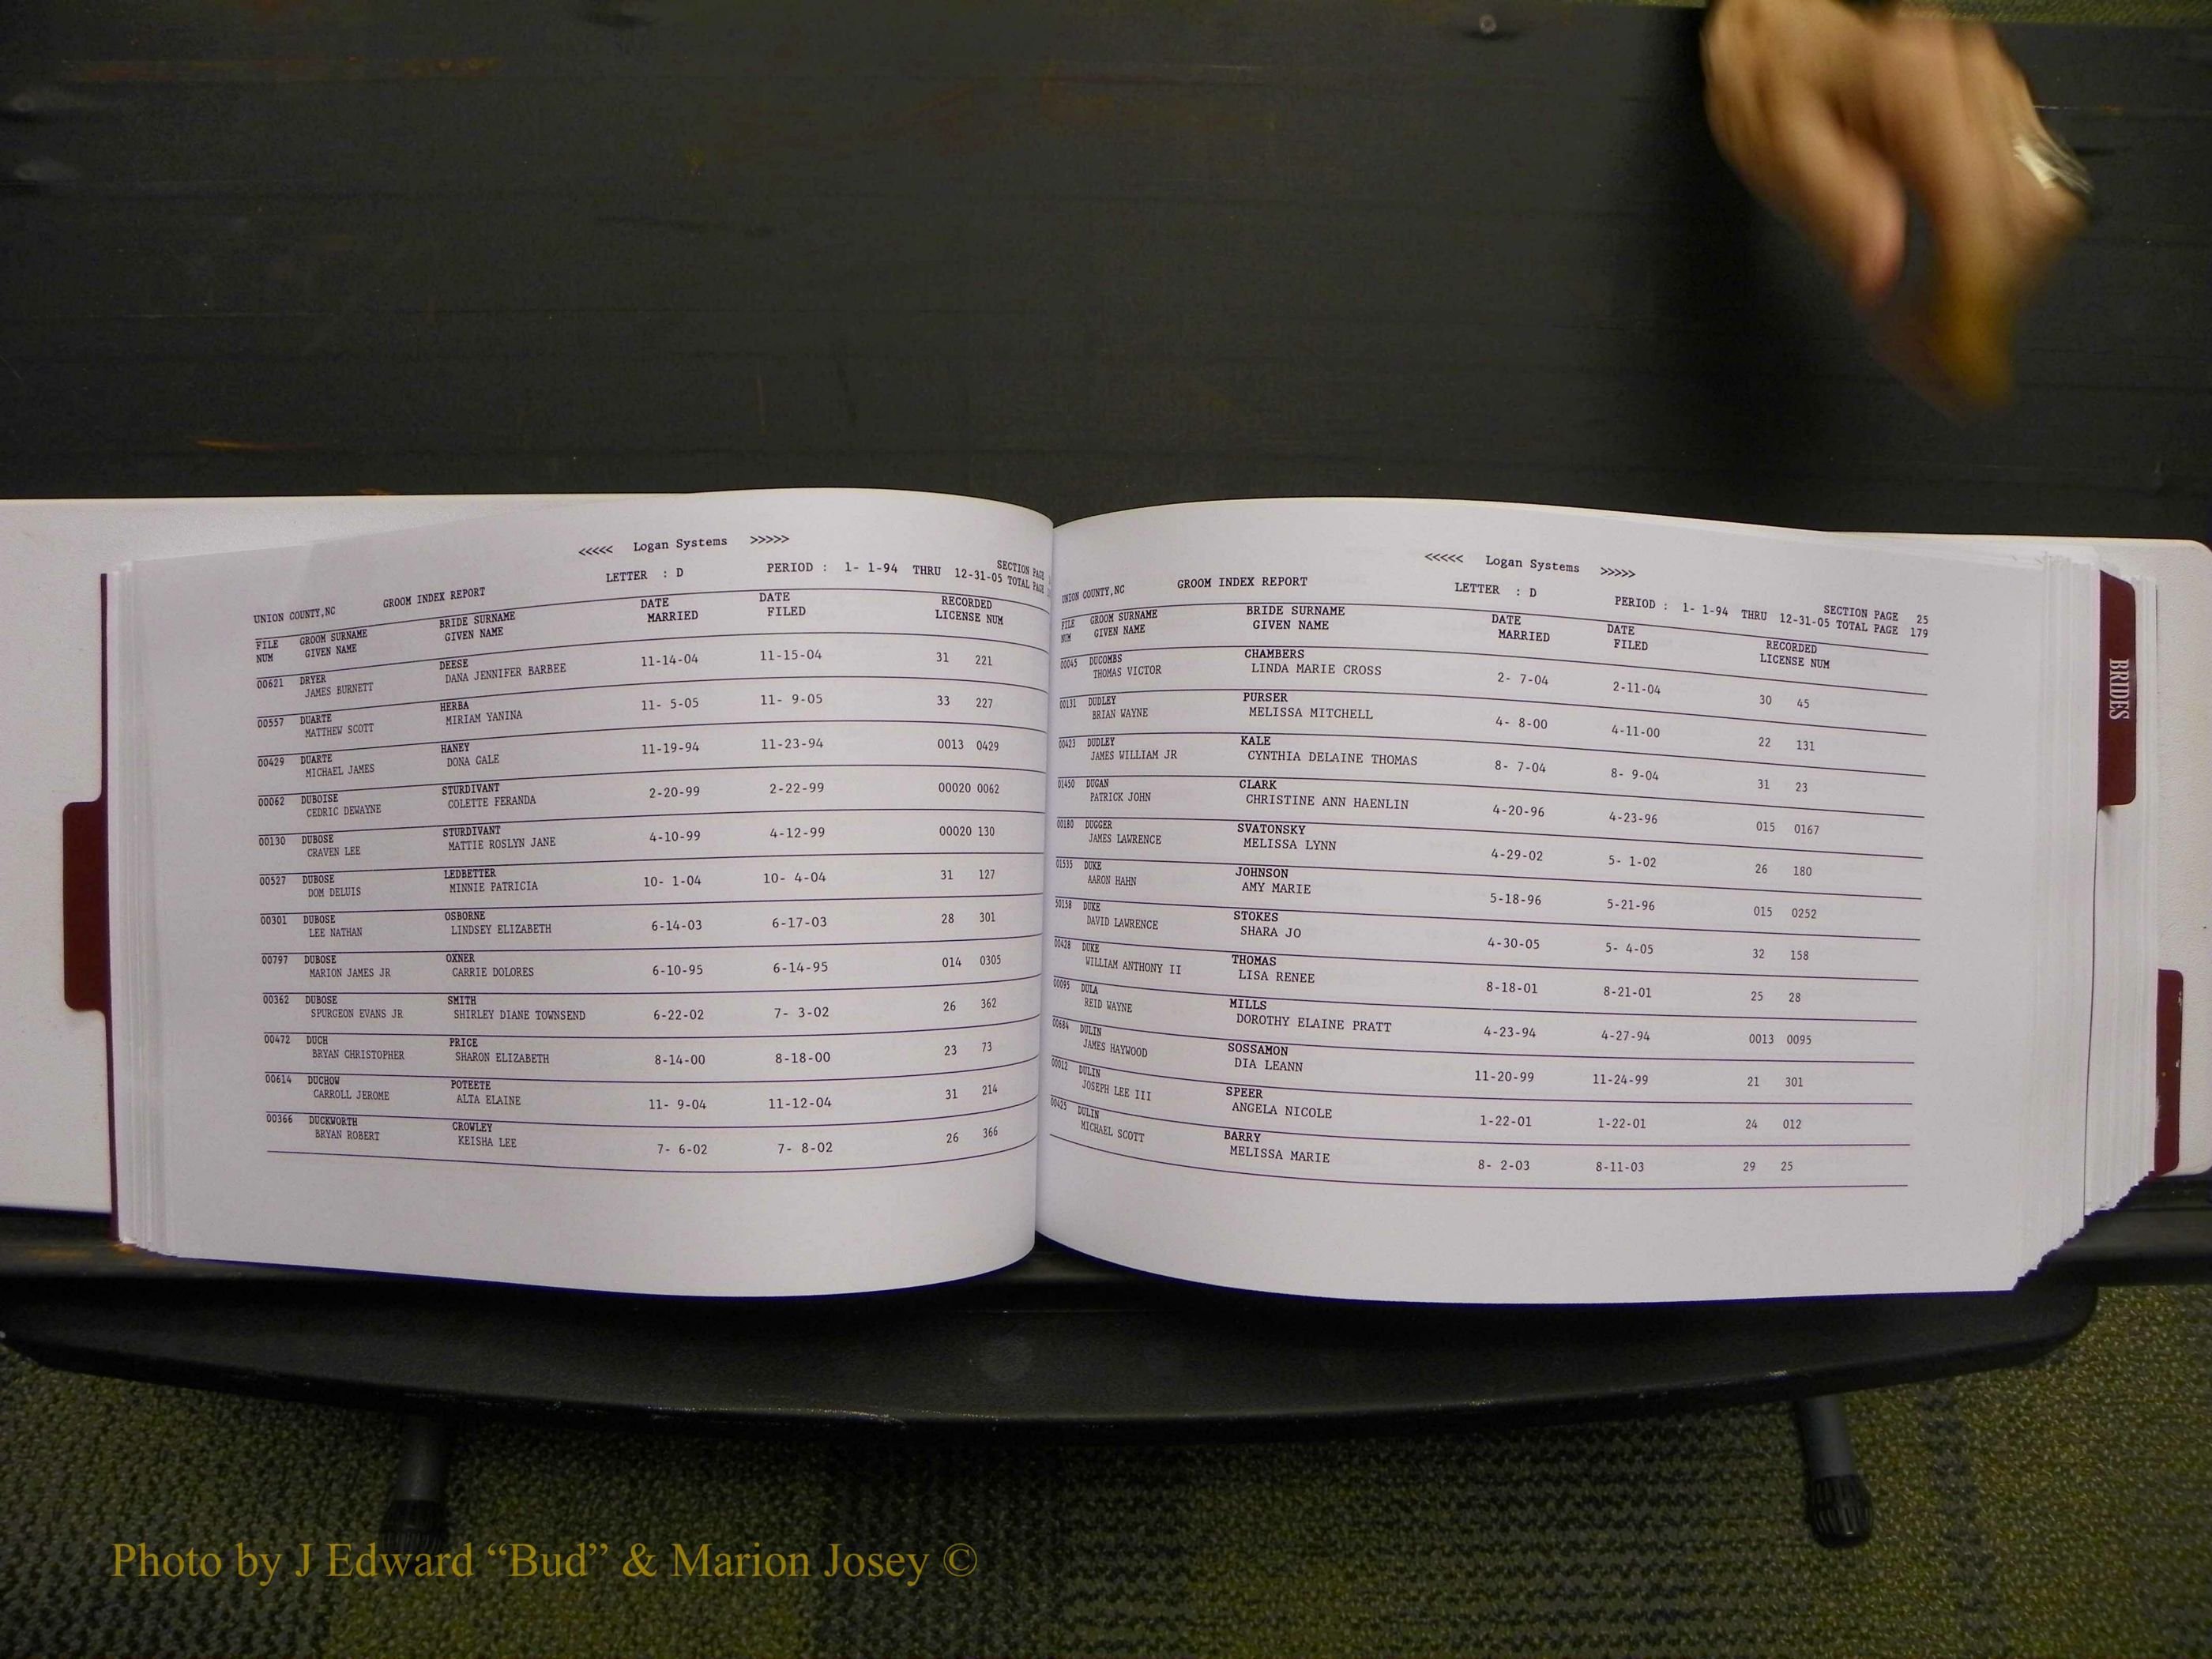 <<<<< Logan Systems >>>>>
UNION COUNTY,NC GROOM INDEX REPORT LETTER : D PERIOD : 1- 1-94 THRU 12-31-05 SECTION PAGE
TOTAL PAGE
FILE GROOM SURNAME BRIDE SURNAME DATE DATE RECORDED
NUM GIVEN NAME GIVEN NAME MARRIED FILED LICENSE NUM
00621 DRYER DEESE 11-14-04 11-15-04 31 221
JAMES BURNETT DANA JENNIFER BARBEE
00557 DUARTE HERBA 11- 5-05 11- 9-05 33 227
MATTHEW SCOTT MIRIAM YANINA
00429 DUARTE HANEY 11-19-94 11-23-94 0013 0429
MICHAEL JAMES DONA GALE
00062 DUBOISE STURDIVANT 2-20-99 2-22-99 00020 0062
CEDRIC DEWAYNE COLETTE FERANDA
00130 DUBOSE STURDIVANT 4-10-99 4-12-99 00020 130
CRAVEN LEE MATTIE ROSLYN JANE
00527 DUBOSE LEDBETTER 10- 1-04 10- 4-04 31 127
DOM DELUIS MINNIE PATRICIA
00301 DUBOSE OSBORNE 6-14-03 6-17-03 28 301
LEE NATHAN LINDSEY ELIZABETH
00797 DUBOSE OXNER 6-10-95 6-14-95 014 0305
MARION JAMES JR CARRIE DOLORES
00362 DUBOSE SMITH 6-22-02 7- 3-02 26 362
SPURGEON EVANS JR SHIRLEY DIANE TOWNSEND
00472 DUCH PRICE 8-14-00 8-18-00 23 73
BRYAN CHRISTOPHER SHARON ELIZABETH
00614 DUCHOW POTEETE 11- 9-04 11-12-04 31 214
CARROLL JEROME ALTA ELAINE
00366 DUCKWORTH CROWLEY 7- 6-02 7- 8-02 26 366
BRYAN ROBERT KEISHA LEE
<<<<< Logan Systems >>>>>
UNION COUNTY,NC GROOM INDEX REPORT LETTER : D PERIOD : 1- 1-94 THRU 12-31-05 SECTION PAGE 25
TOTAL PAGE 179
FILE GROOM SURNAME BRIDE SURNAME DATE DATE RECORDED
NUM GIVEN NAME GIVEN NAME MARRIED FILED LICENSE NUM
00045 DUCOMBS CHAMBERS 2- 7-04 2-11-04 30 45
THOMAS VICTOR LINDA MARIE CROSS
00131 DUDLEY PURSER 4- 8-00 4-11-00 22 131
BRIAN WAYNE MELISSA MITCHELL
00423 DUDLEY KALE 8- 7-04 8- 9-04 31 23
JAMES WILLIAM JR CYNTHIA DELAINE THOMAS
01450 DUGAN CLARK 4-20-96 4-23-96 015 0167
PATRICK JOHN CHRISTINE ANN HAENLIN
00180 DUGGER SVATONSKY 4-29-02 5- 1-02 26 180
JAMES LAWRENCE MELISSA LYNN
01535 DUKE JOHNSON 5-18-96 5-21-96 015 0252
AARON HAHN AMY MARIE
50158 DUKE STOKES 4-30-05 5- 4-05 32 158
DAVID LAWRENCE SHARA JO
00428 DUKE THOMAS 8-18-01 8-21-01 25 28
WILLIAM ANTHONY II LISA RENEE
00095 DULA MILLS 4-23-94 4-27-94 0013 0095
REID WAYNE DOROTHY ELAINE PRATT
00684 DULIN SOSSAMON 11-20-99 11-24-99 21 301
JAMES HAYWOOD DIA LEANN
00012 DULIN SPEER 1-22-01 1-22-01 24 012
JOSEPH LEE III ANGELA NICOLE
00425 DULIN BARRY 8- 2-03 8-11-03 29 25
MICHAEL SCOTT MELISSA MARIE
BRIDES
Photo by J Edward “Bud” & Marion Josey ©